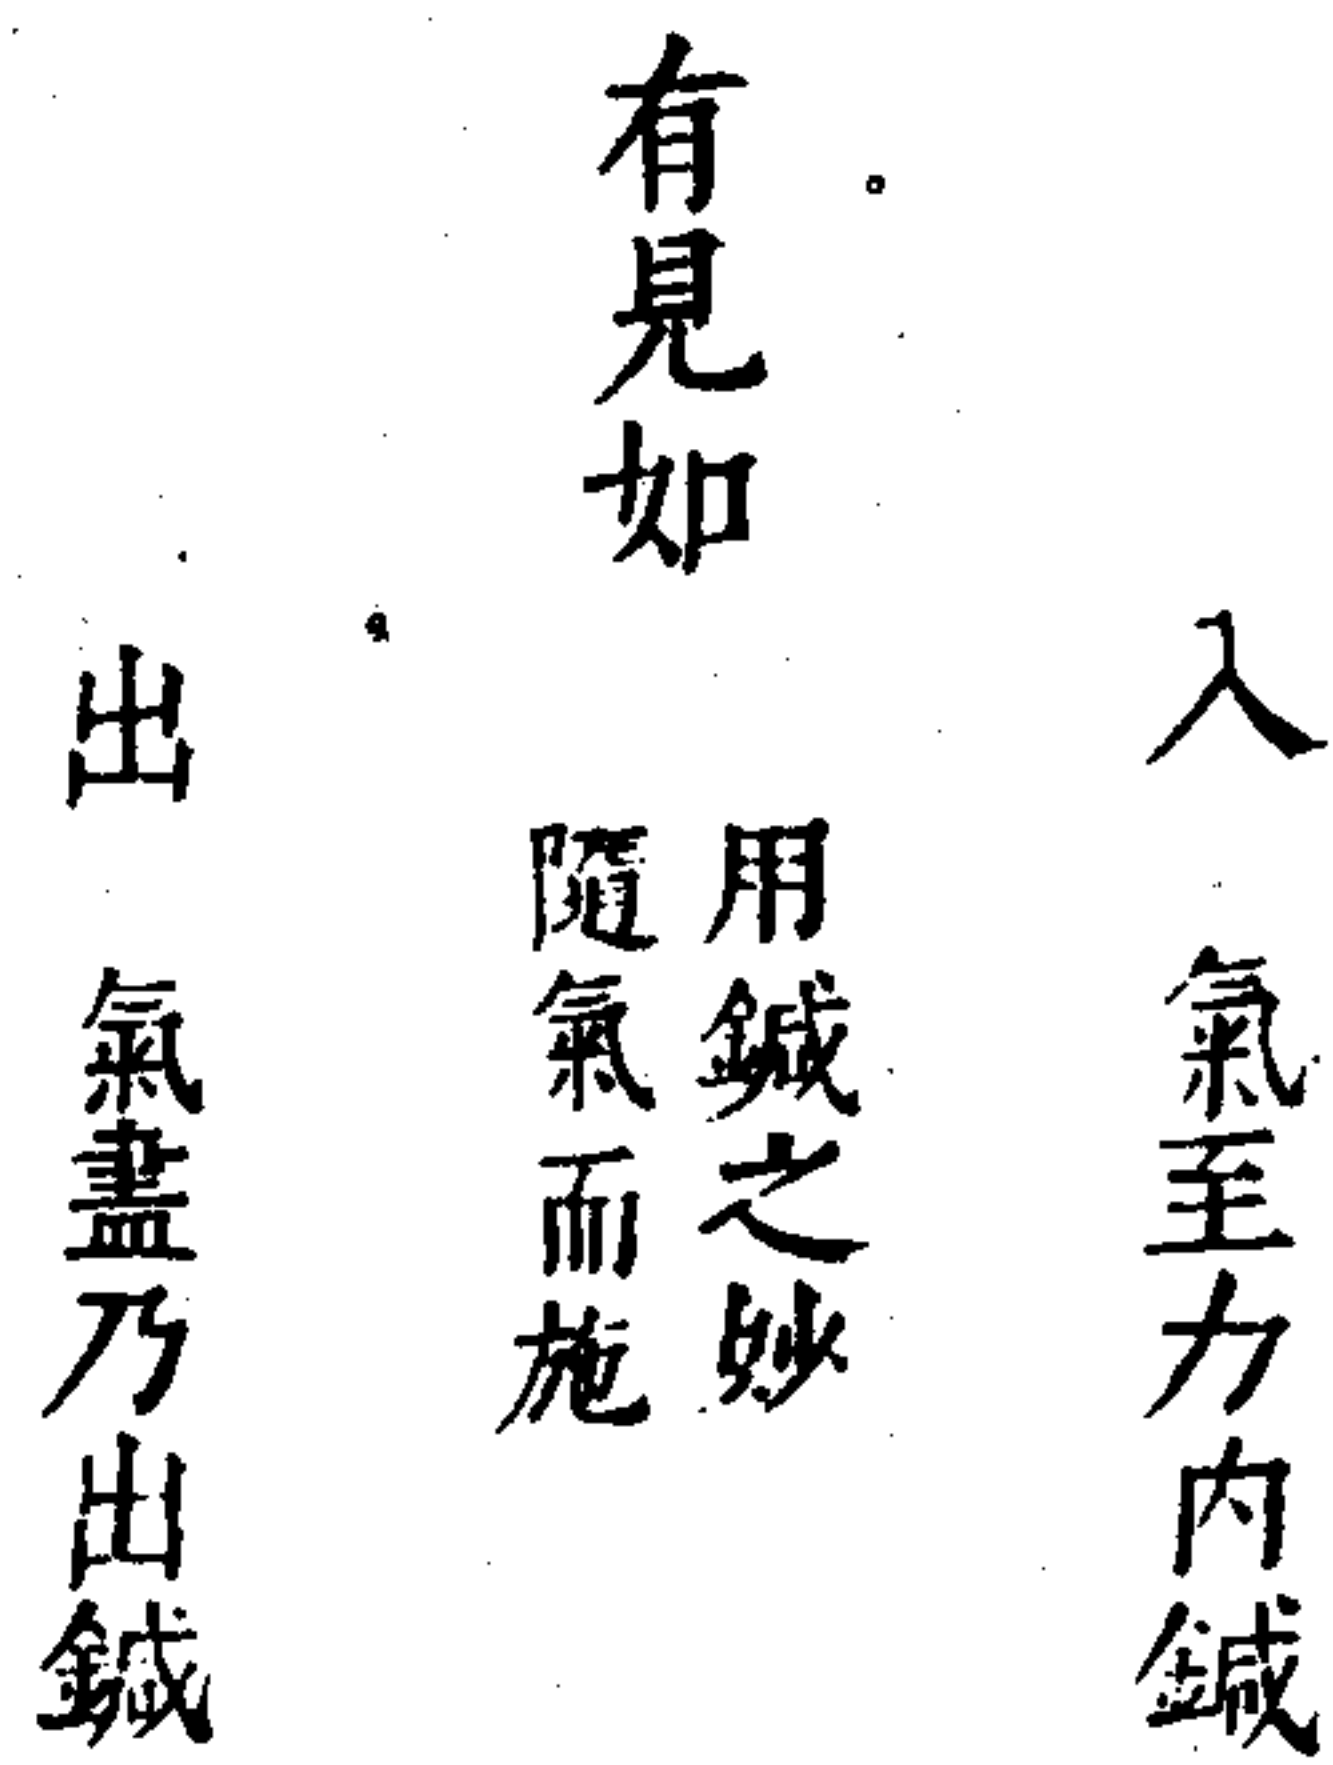 入
氣至力內鍼
有見如
用鍼之妙
隨氣而施
出
氣盡乃出鍼